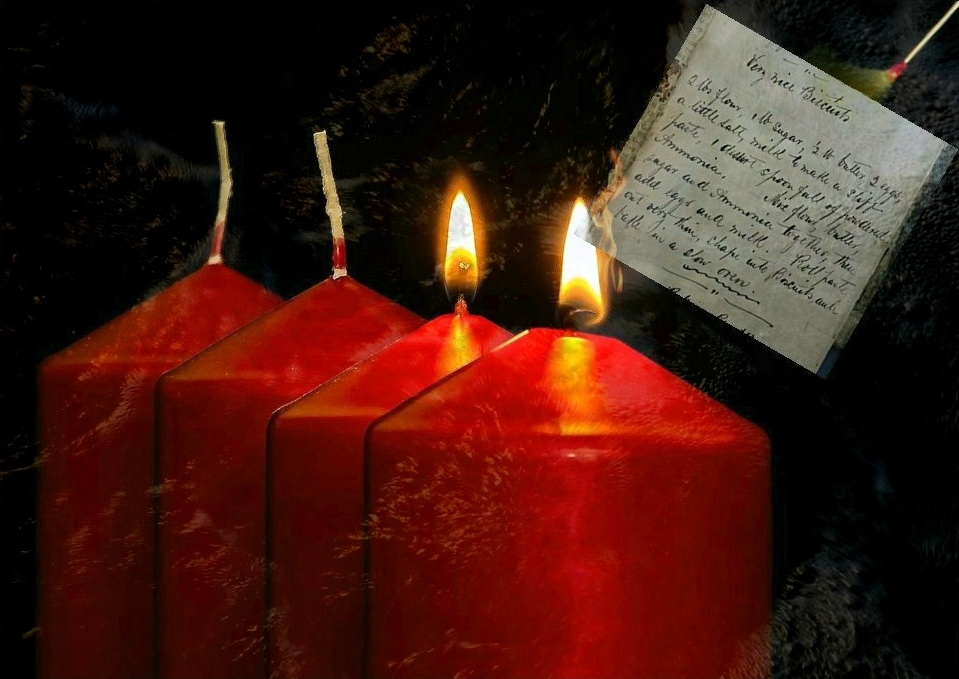 Very nice Biscuits
2 lbs flour, 1 lb sugar, ½ lb butter, 2 eggs
a little salt, milk to make a stiff
paste 1 spoonfull of powdered
Ammonia. flour, butter,
sugar and Ammonia together, then
add eggs and milk. Roll paste
out very thin, shape into Biscuits and
in a slow oven.